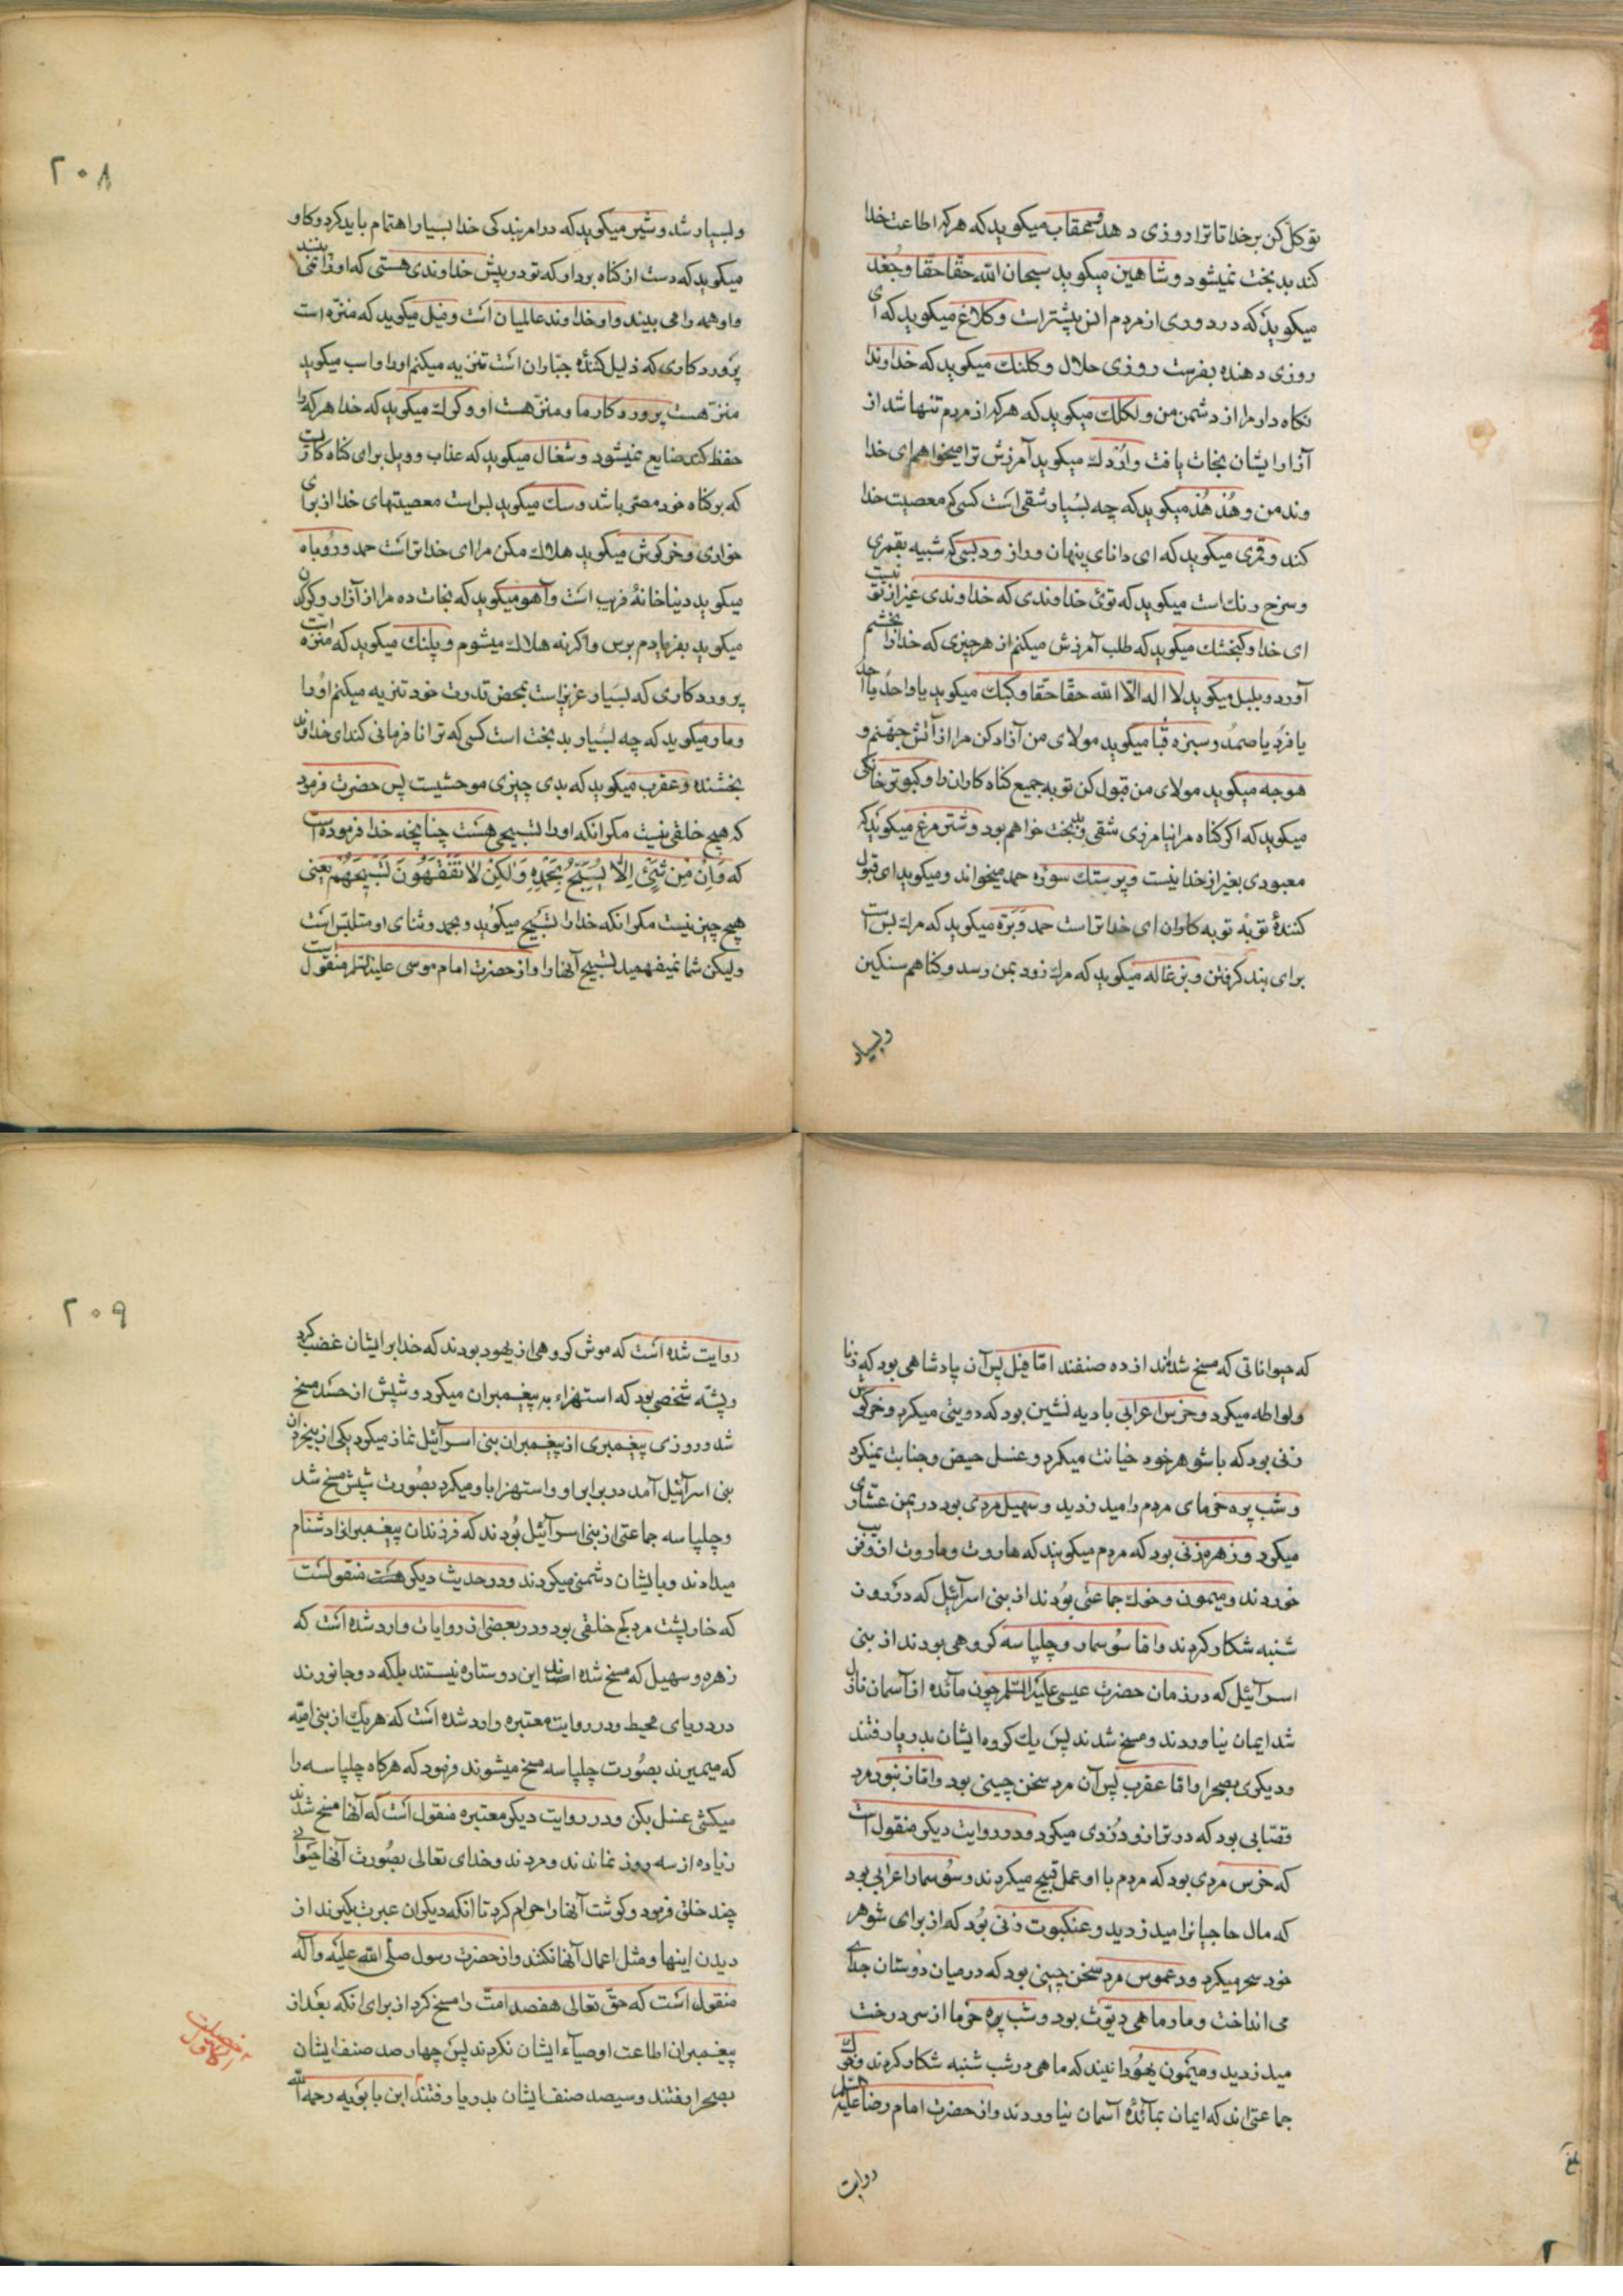 توکل کن بر خدا تا ترا روزی دهد و عقاب میکوید که هرکه اطاعت خدا
کند بدبخت نمیشود و شاهین میکوید سبحان الله حقّا حقّا و جُغد
میکوید که در دوری از مردم انس بیشتر است و کلاغ میکوید که ای
روزی دهنده بفرست روزی حلال و کلنك میکوید که خداوندا
نکاه دار مرا از دشمن من و لکلك میکوید که هرکه از مردم تنها شد از
آزار ایشان نجات یافت و اُردك میکوید آمرزش ترا میخواهم ای خدا
وند من و هُدهُد میکوید که چه بسیار شقی است کسی که معصیت خدا
کند و قمری میکوید که ای دانای پنهان و راز و دبسی که شبیه بقمری
و سرخ رنك است میکوید که توئی خداوندی که خداوندی غیر از تو نیست
ای خدا و کنجشك میکوید که طلب آمرزش میکنم از هر چیزی که خدا را بخشم
آورد و بلبل میکوید لا اله الّا الله حقّا حقّا و کبك میکوید یا واحدُ یا احد
یا فردُ یا صمدُ و سبزه قبا میکوید مولای من آزاد کن مرا از آتش جهنّم و
هوجه میکوید مولای من قبول کن توبه جمیع کناه کاران را و کبوتر خانکی
میکوید که اکر کناه مرا نیامرزی شقی و بدبخت خواهم بود و شتر مرغ میکوید که
معبودی بغیر از خدا نیست و پرستك سوره حمد میخواند و میکوید ای قبول
کنندۀ توبۀ توبه کاران ای خدا تراست حمد و بَرّه میکوید که مرك بس است
برای پند کرفتن و بزغاله میکوید که مرك زود بمن رسد و کناهم سنکین
و بسیار
۲۰۸
و بسیار شد و شیر میکوید که در امر بندکی خدا بسیار اهتمام باید کرد و کاو
میکوید که دست از کناه بردار که تو در پیش خداوندی هستی که او را نمی بینند
و او همه را می بیند و او خداوند عالمیان است و فیل میکوید که منزّه است
پروردکاری که ذلیل کنندۀ جبّاران است تنزیه میکنم او را و اسب میکوید
منزّهست پروردکار ما و منزّهست او و کرك میکوید که خدا هرکه را
حفظ کند ضایع نمیشود و شغال میکوید که عذاب و ویل برای کناه کاریست
که بر کناه خود مصرّ باشد و سك میکوید بس است معصیتهای خدا از برای
خواری و خرکوش میکوید هلاك مکن مرا ای خدا تراست حمد و روباه
میکوید دنیا خانۀ فریب است و آهو میکوید که نجات ده مرا از آزار و کرکدن
میکوید بفریادم برس واکرنه هلاك میشوم و پلنك میکوید که منزّه است
پروردکاری که بسیار عزیز است بمحض قدرت خود تنزیه میکنم او را
و مار میکوید که چه بسیار بدبخت است کسی که ترا نافرمانی کند ای خداوند
بخشنده و عقرب میکوید که بدی چیزی موحشیست پس حضرت فرمود
که هیچ خلقی نیست مکر انکه او را تسبیحی هست چنانچه خدا فرموده است
که وَاِنْ مِنْ شَیْءٍ اِلّا یُسَبِّحُ بِحَمْدِهِ وَلکِنْ لا تَفْقَهُونَ تَسْبیحَهُمْ یعنی
هیچ چیز نیست مکر انکه خدا را تسبیح میکوید و بحمد و ثنای او متلبّس است
ولیکن شما نمیفهمید تسبیح آنها را و از حضرت امام موسی علیه السّلم منقول است
که حیواناتی که مسخ شده اند از ده صنفند امّا فیل پس آن پادشاهی بود که زنا
و لواطه میکرد و خرس اعرابی بادیه نشین بود که دیوثی میکرد و خرکوش
زنی بود که با شوهر خود خیانت میکرد و غسل حیض و جنابت نمیکرد
و شب پره خرمای مردم را میدزدید و سهیل مردی بود در یمن عشّاری
میکرد و زهره زنی بود که مردم میکویند که هاروت و ماروت از و فریب
خوردند و میمون و خوك جماعتی بودند از بنی اسرآئیل که در روز
شنبه شکار کردند و امّا سوسمار و چلپاسه کروهی بودند از بنی
اسرآئیل که در زمان حضرت عیسی علیه السّلم چون مائده از آسمان نازل
شد ایمان نیاوردند و مسخ شدند پس یك کروه ایشان بدریا رفتند
و دیکری بصحرا و امّا عقرب پس آن مرد سخن چینی بود و امّا زنبور مرد
قصّابی بود که در ترازو دزدی میکرد و در روایت دیکر منقول است
که خرس مردی بود که مردم با او عمل قبیح میکردند و سوسمار اعرابی بود
که مال حاجیانرا میدزدید و عنکبوت زنی بود که از برای شوهر
خود سحر میکرد و دعموص مرد سخن چینی بود که در میان دوستان جدائی
می انداخت و مارماهی دیّوث بود و شب پره خرما از سر درخت
میدزدید و میمون یهودانیند که ماهی در شب شنبه شکار کردند و خوك
جماعتی اند که ایمان بمائدۀ آسمان نیاوردند و از حضرت امام رضا علیه السّلم
روایت
۲۰۹
روایت شده است که موش کروهی از یهود بودند که خدا بر ایشان غضب کرد
و پشّه شخصی بود که استهزاء به پیغمبران میکرد و شپش از حسد مسخ
شد و روزی پیغمبری از پیغمبران بنی اسرآئیل نماز میکرد یکی از بیخردان
بنی اسرآئیل آمد در برابر او و استهزا باو میکرد بصورت شپش مسخ شد
و چلپاسه جماعتی از بنی اسرآئیل بودند که فرزندان پیغمبرانرا دشنام
میدادند و با ایشان دشمنی میکردند و در حدیث دیکر منقولست
که خارپشت مرد کج خلقی بود و در بعضی از روایات وارد شده است که
زهره و سهیل که مسخ شده اند این دو ستاره نیستند بلکه دو جانورند
در دریای محیط و در روایت معتبره وارد شده است که هر یك از بنی امیّه
که میمیرند بصورت چلپاسه مسخ میشوند فرمود که هرکاه چلپاسه را
میکشی غسل بکن و در روایت دیکر معتبره منقول است که آنها مسخ شدند
زیاده از سه روز نماندند و مردند و خدای تعالی بصورت آنها حیوانی
چند خلق فرمود و کوشت آنها را حرام کرد تا انکه دیکران عبرت بکیرند از
دیدن اینها و مثل اعمال آنها نکنند و از حضرت رسول صلّی الله علیه و آله
منقول است که حقّ تعالی هفصد امّت را مسخ کرد از برای انکه بعد از
پیغمبران اطاعت اوصیآء ایشان نکردند پس چهار صد صنف ایشان
بصحرا رفتند و سیصد صنف ایشان بدریا رفتند ابن بابویه رحمه الله